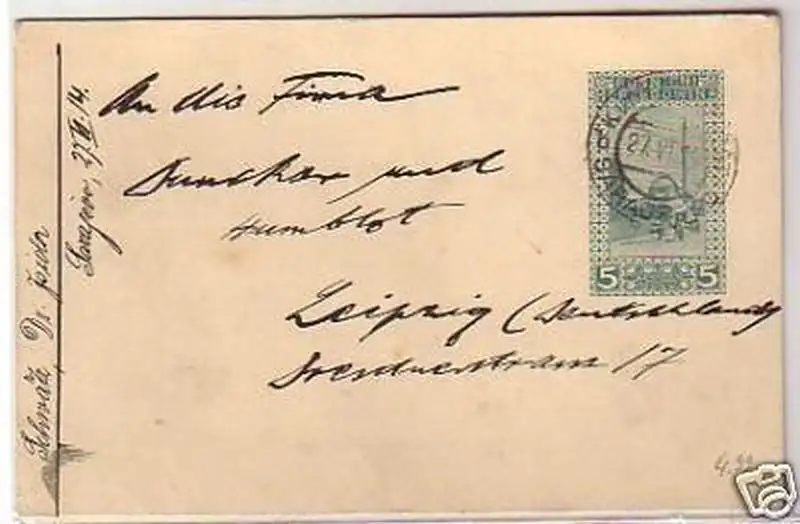 An die Firma
Duncker und
Humblot
Leipzig (Deutschland)
Dresdnerstrasse 17
Sarajevo, 27. VI 14.
Dr.
27.VI
5 5